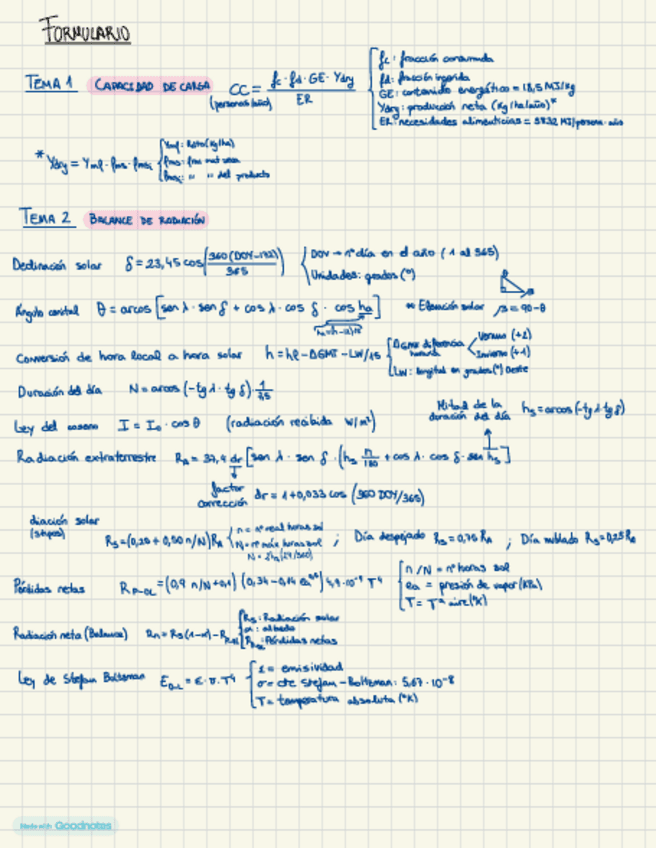 FORMULARIO
TEMA 1 CAPACIDAD DE CARGA CC = fc · fd · GE · Ydry / ER
(personas/año)
fc: fracción consumida
fd: fracción ingerida
GE: contenido energético = 18,5 MJ/kg
Ydry: producción neta (kg/ha/año)*
ER: necesidades alimenticias = 3832 MJ/persona·año
* Ydry = Ymf · fms ·
TEMA 2 BALANCE DE RADIACIÓN
Declinación solar δ = 23,45 cos(360 (DOY-172) / 365)
DOY → nº día en el año (1 al 365)
Unidades: grados (°)
Ángulo cenital θ = arcos [sen λ · sen δ + cos λ · cos δ · cos ha] ** Elevación solar β = 90-θ
Conversión de hora local a hora solar h = hl - ΔGMT - LW/15
ΔGMT diferencia horaria
Verano (+2)
Invierno (+1)
LW: longitud en grados (°) Oeste
Duración del día N = arcos (-tg λ · tg δ) · 1/7,5
Mitad de la duración del día hs = arcos (-tg λ · tg δ)
Ley del coseno I = I₀ · cos θ (radiación recibida W/m²)
Radiación extraterrestre RA = 37,4 dr [sen λ · sen δ · (hs π/180 + cos λ · cos δ · sen hs]
factor corrección dr = 1 + 0,033 cos (360 DOY/365)
diación solar
RS = (0,25 + 0,50 n/N) RA
n = nº real horas sol
N = nº máx horas sol
; Día despejado RS = 0,75 RA ; Día nublado RS = 0,25 RA
Pérdidas netas
n/N = nº horas sol
ea = presión de vapor (kPa)
T = Tª aire (°K)
Radiación neta (Balance) Rn = RS (1-α) -
RS: Radiación solar
α: albedo
Pérdidas netas
Ley de Stefan Boltzman = ε · σ · T⁴
ε = emisividad
σ = cte Stefan-Boltzman: 5,67 · 10⁻⁸
T = temperatura absoluta (°K)
Made with Goodnotes